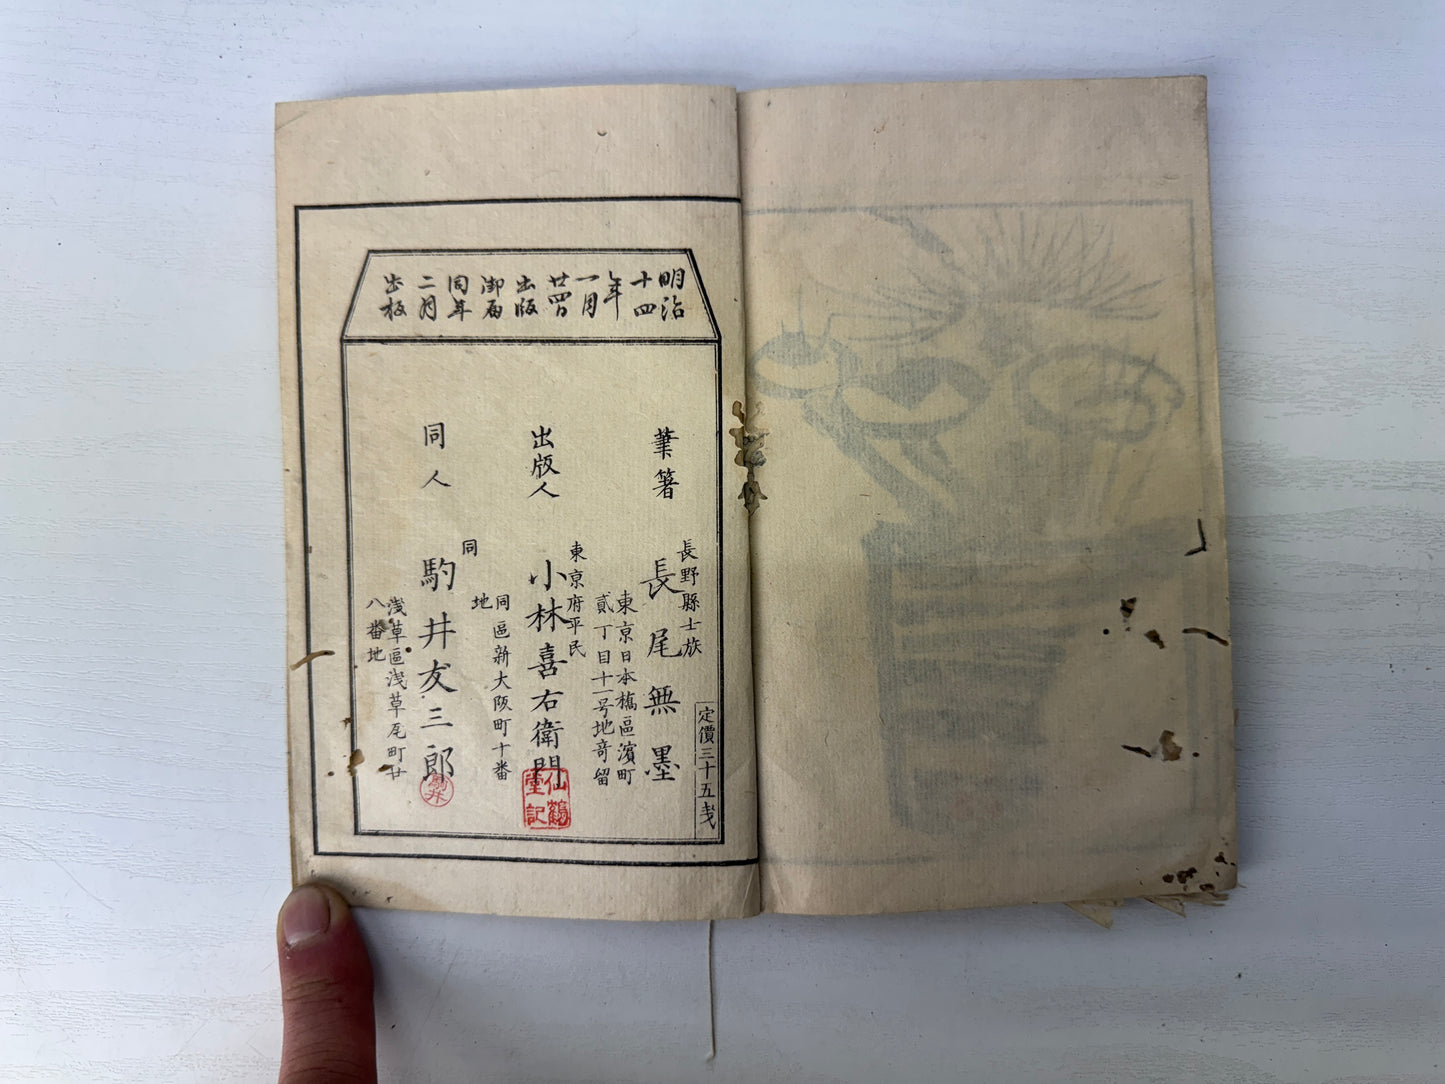 明治
十四
年
一月
廿四日
出版
御届
同年
二月
出板
定價三十五戔
長野縣士族
筆者 長尾無墨
東京日本橋區濱町
貳丁目十一号地寄留
東京府平民
出版人 小林喜右衛門
同區新大阪町十番
地
仙鶴
堂記
同
同人 駒井友三郎
駒井
淺草區淺草瓦町廿
八番地